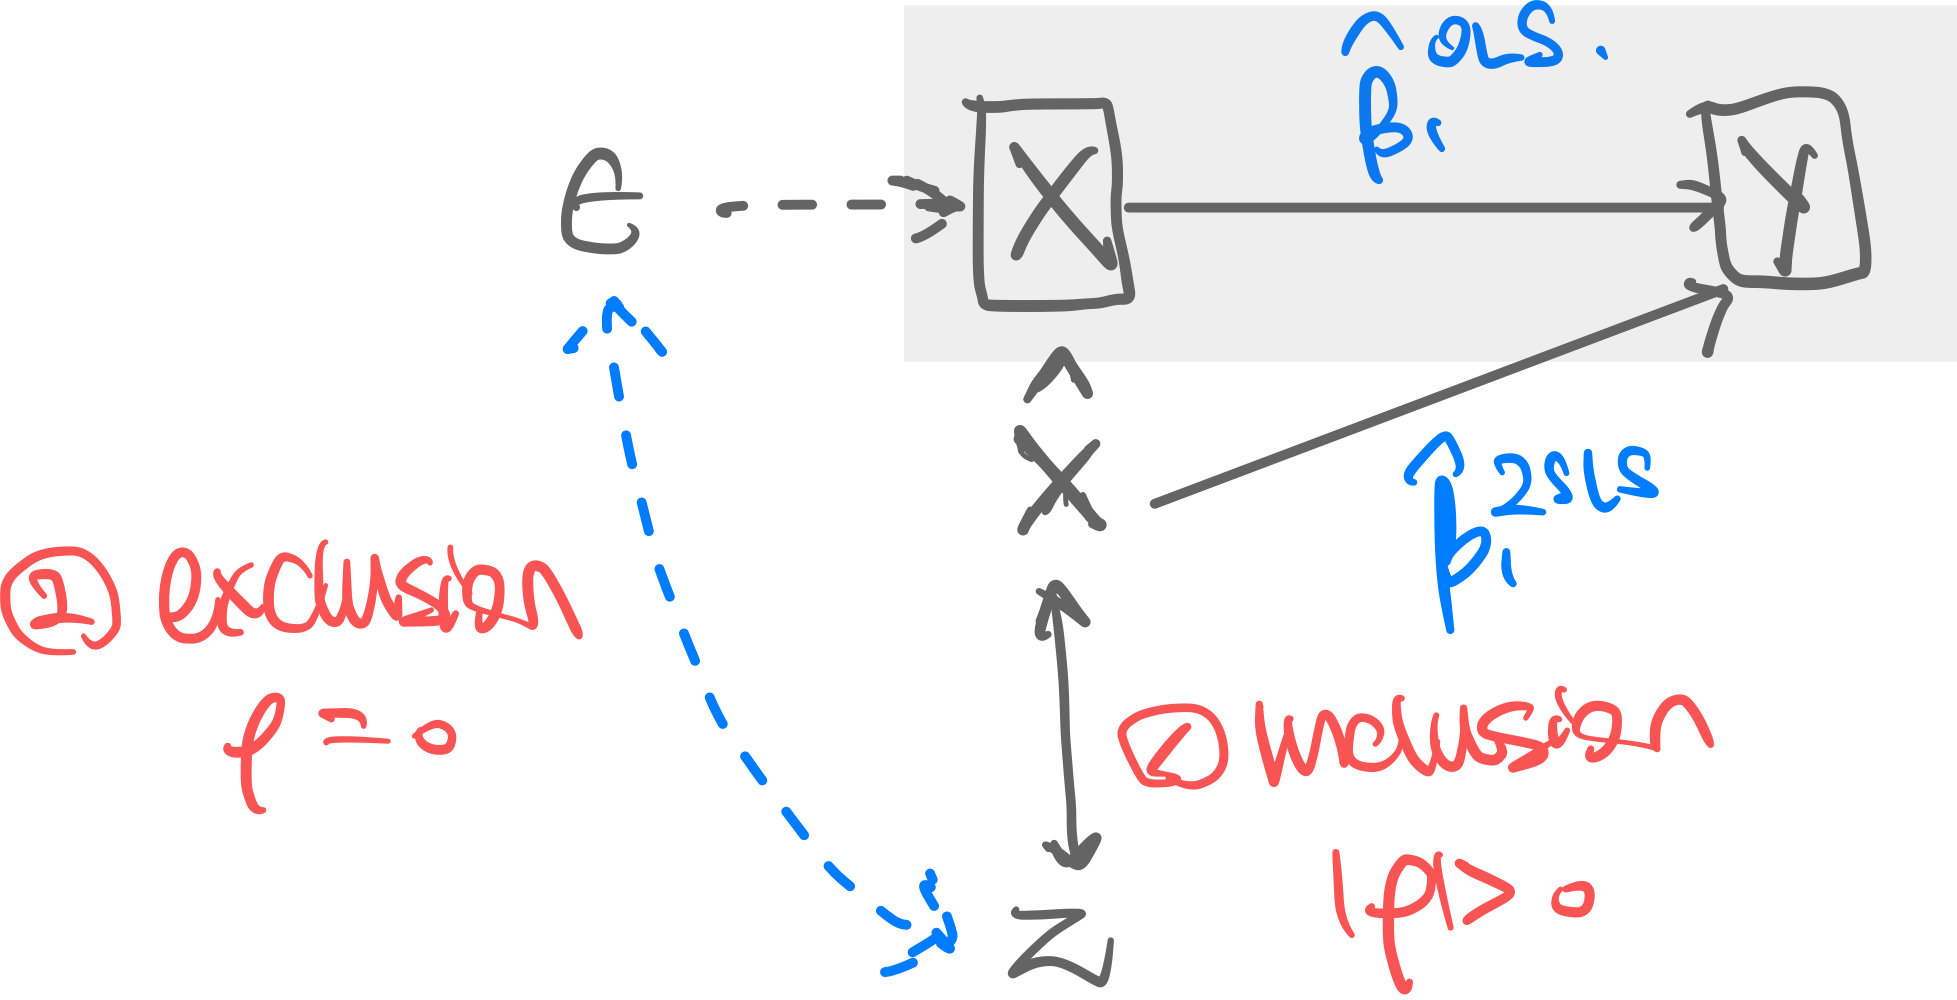 β̂₁ OLS.
ϵ X Y
X̂
β̂₁ 2SLS
① exclusion
ρ = 0
② inclusion
|ρ| > 0
Z